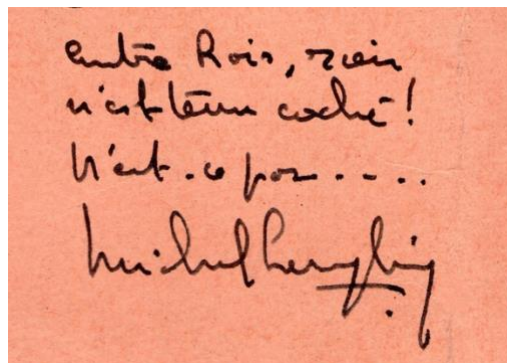 entre Rois, rien
n'est tenu caché!
N'est-ce pas.....
Michel